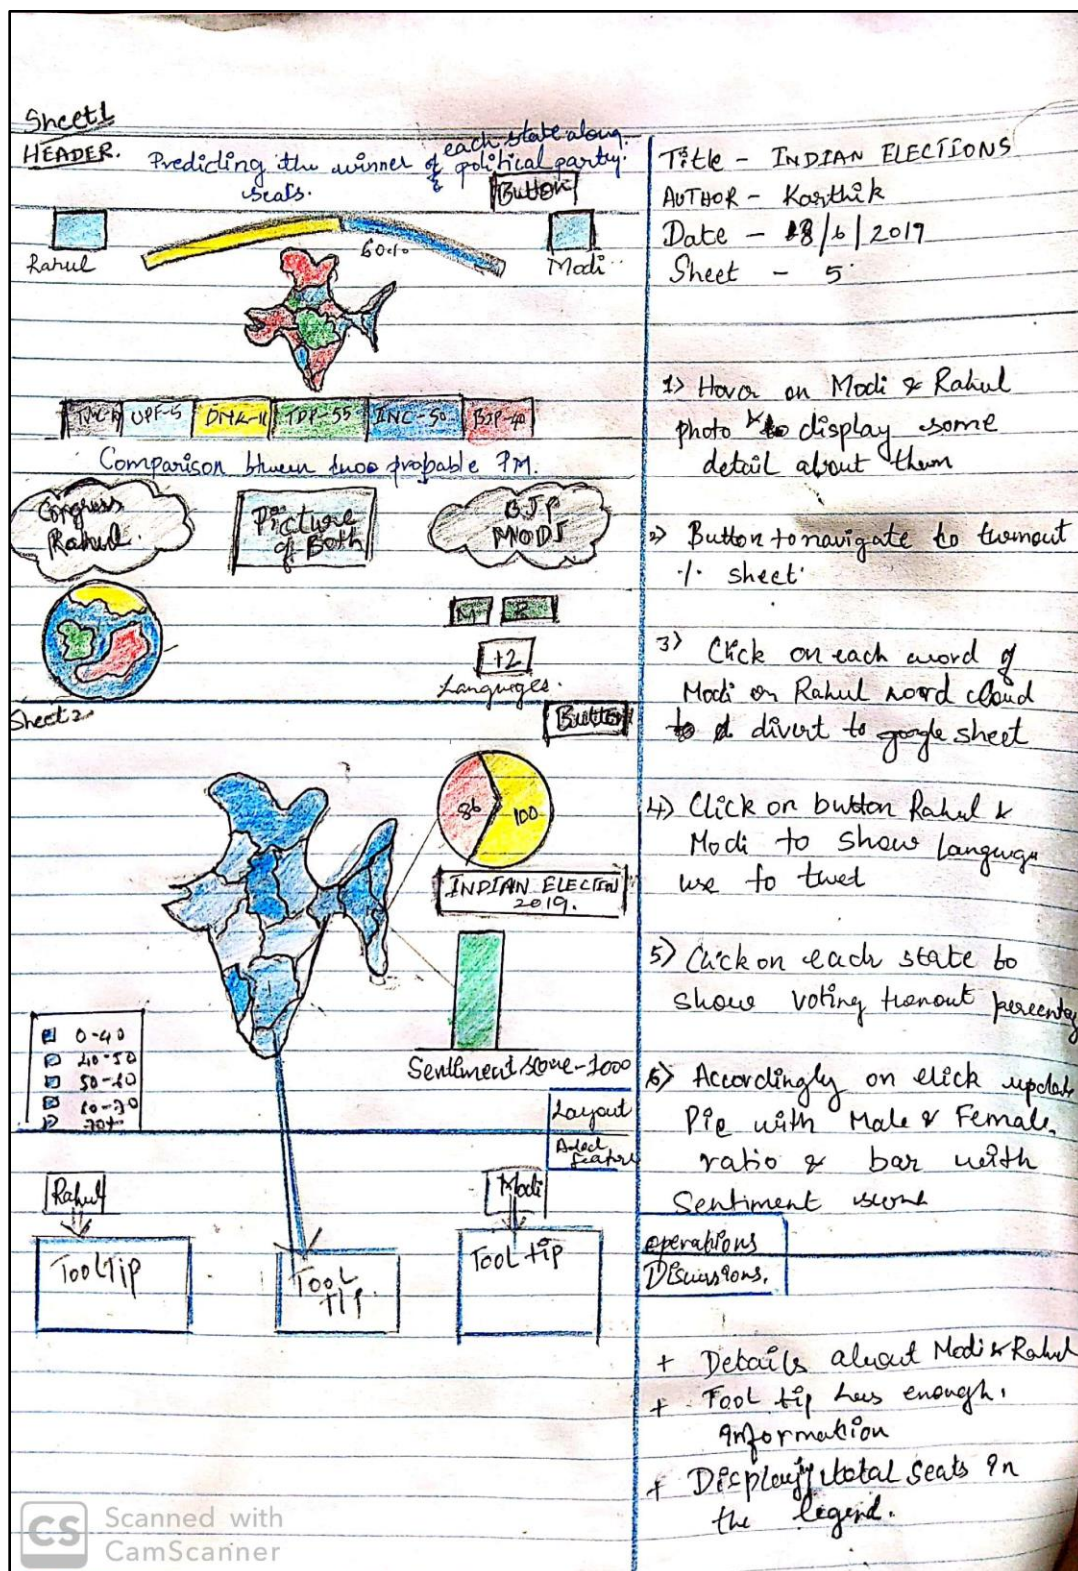 Sheet1
HEADER.
Predicting the winner of each state along
& political party.
seats.
Button
Rahul
60%
Modi
UPF-5
DMK-11
TDP-55
INC-50
BJP-40
Comparison btween two probable PM.
Congress
Rahul.
Picture
of Both
BJP
MODI
M
R
+2
Languages.
Sheet 2
Button
86
100
INDIAN ELECTION
2019.
0-40
40-50
50-60
60-70
70+
Sentiment score-1000
Layout
Added
feature
Rahul
Modi
ToolTip
Tool
tip
Tool tip
Title - INDIAN ELECTIONS
AUTHOR - Karthik
Date - 18/6/2019
Sheet - 5
1) Hover on Modi & Rahul
photo to display some
detail about them
2) Button to navigate to turnout
% sheet
3) Click on each word of
Modi or Rahul word cloud
to divert to google sheet
4) Click on button Rahul &
Modi to show language
use to twet
5) Click on each state to
show voting turnout percentag
6) Accordingly on click update
Pie with Male & Female
ratio & bar with
Sentiment score
operations
Discussions.
+ Details about Modi & Rahul
+ Tool tip has enough
information
+ Displaying total seats in
the legend.
CS
Scanned with
CamScanner